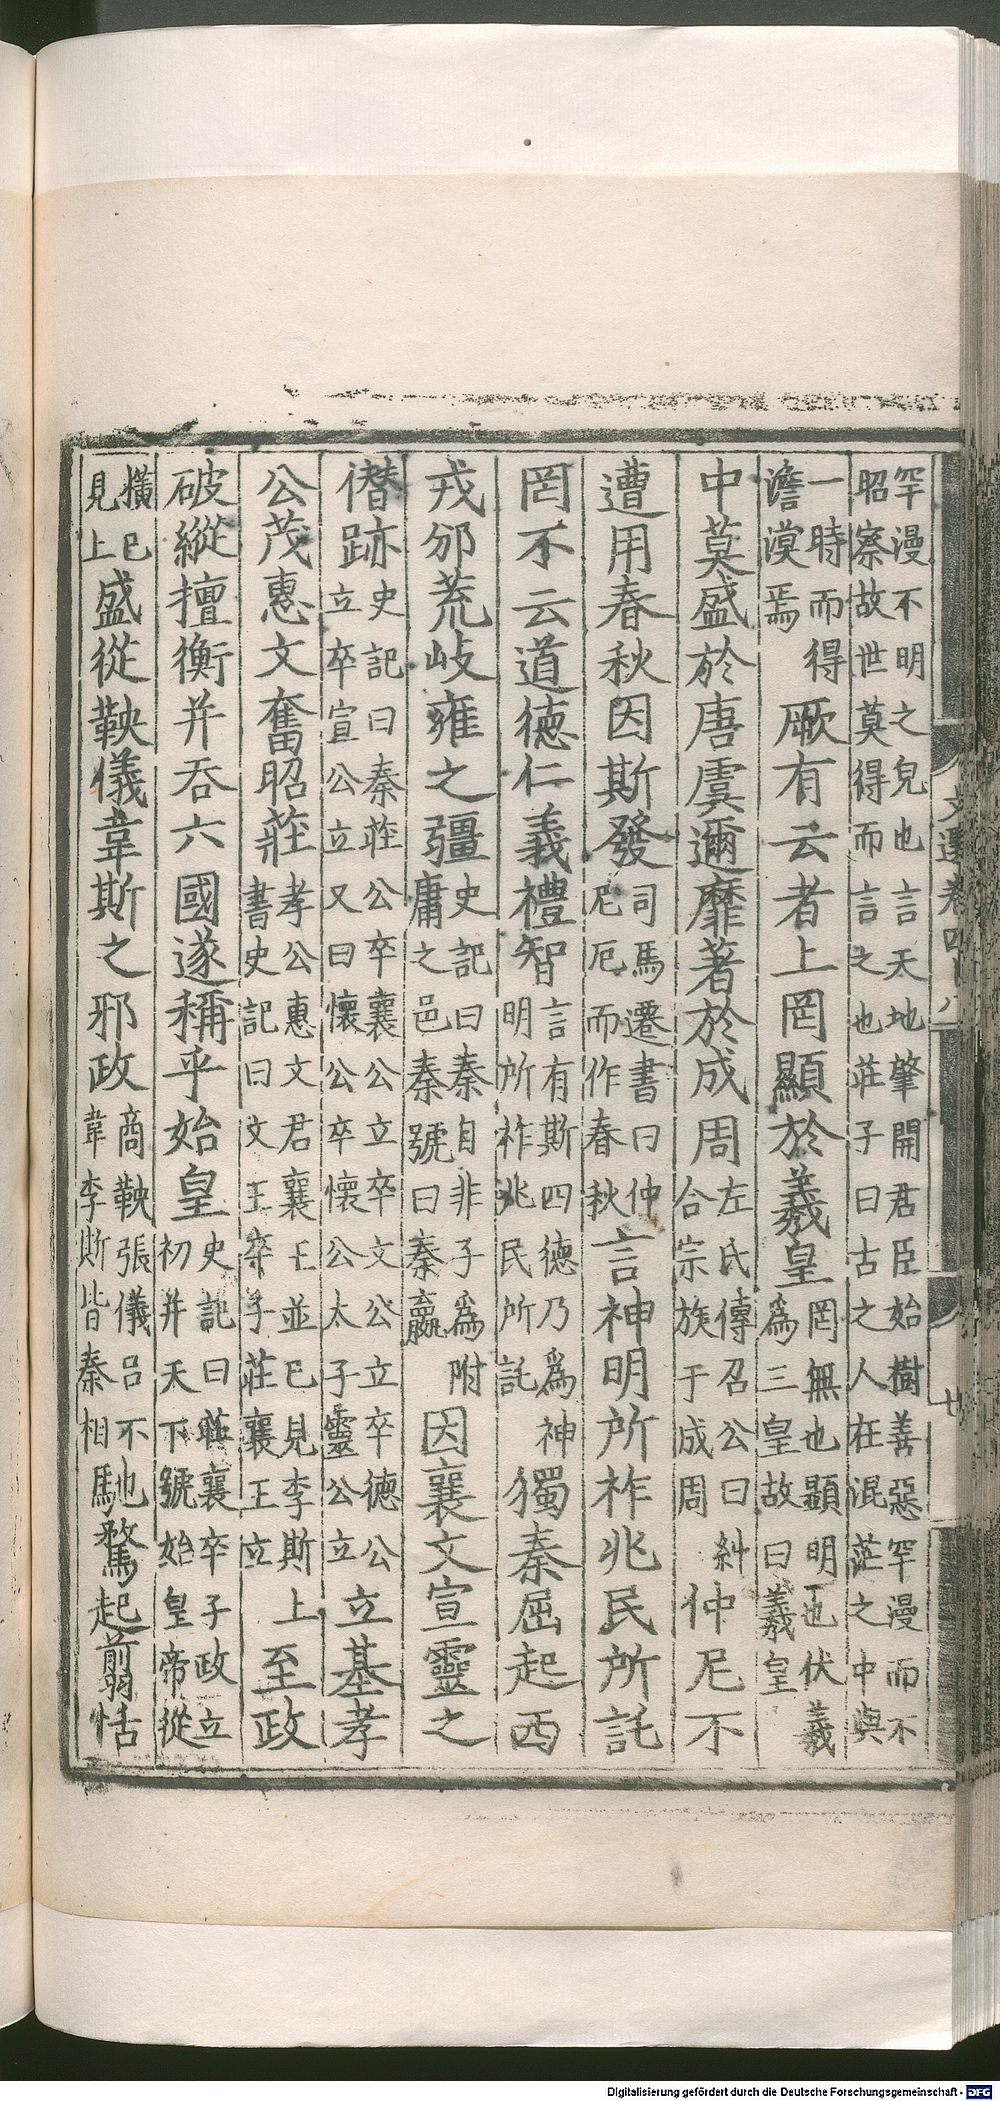 罕漫不明之皃也言天地肇開君臣始樹善惡罕漫而不
昭察故世莫得而言之也莊子曰古之人在混茫之中與
一時而得
澹漠焉
厥有云者上罔顯於羲皇
罔無也顯明也伏羲
爲三皇故曰羲皇
中莫盛於唐虞邇靡著於成周
左氏傳召公曰糾
合宗族于成周
仲尼不
遭用春秋因斯發
司馬遷書曰仲
尼厄而作春秋
言神明所祚兆民所託
罔不云道德仁義禮智
言有斯四德乃爲神
明所祚兆民所託
獨秦屈起西
戎邠荒岐雍之彊
史記曰秦自非子爲附
庸之邑秦號曰秦嬴
因襄文宣靈之
僭跡
史記曰秦莊公卒襄公立卒文公立卒德公
立卒宣公立又曰懷公卒懷公太子靈公立
立基孝
公茂惠文奮昭莊
孝公惠文君襄王並已見李斯上
書史記曰文王卒子莊襄王立
至政
破縱擅衡并吞六國遂稱乎始皇
史記曰莊襄卒子政立
初并天下號始皇帝從
橫已
見上
盛從鞅儀韋斯之邪政
商鞅張儀呂不
韋李斯皆秦相
馳騖起翦恬
文選卷四十八
廿
Digitalisierung gefördert durch die Deutsche Forschungsgemeinschaft - DFG